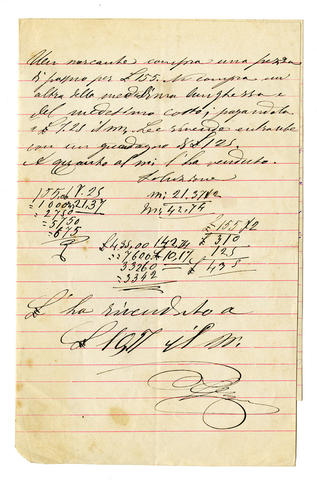 Un mercante compra una pezza
di panno per £ 155. Ne compra un
altra della medesima lunghezza e
del medesimo costo, pagandola
£ 7.25 il m. Le rivende entrambe
con un guadagno di £ 125.
A quanto al m. l'ha venduto.
Soluzione
155,0 7.25 m. 21.37 × 2
= 1000 21,37 m. 42.74
= 2750 £ 155 × 2
= 5750 £ 435,00 42.74 £ 310
= 675 = 7600 10,17 125
33260 £ 435
= 3342
L'ha rivenduto a
£ 10,17 il m.